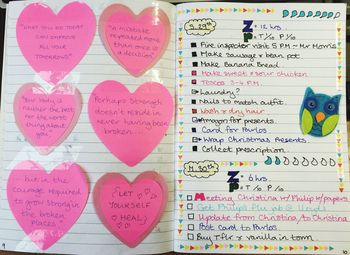 "WHAT YOU DO TODAY
CAN IMPROVE
ALL YOUR
TOMORROWS."
"A mistake
repeated more
than once is
a decision"
"Your body is
the best
for the worst
thing about
you"
Perhaps Strength
doesn't reside in
never having been
broken...
but in the
courage required
to grow strong in
the broken
places."
"LET
YOURSELF
HEAL"
9
S. 29th
Z = 12 hrs.
P = T/10 P/10
Fire inspector visit 5 P.M - Mr Morris
Make Sausage & bean pot
Make Banana Bread
Make sweet & sour chicken
Tesco 3-4 P.M.
Laundry?
Nails to match outfit
Wash & dry hair
Amazon for presents
Card for Pavlos
Wrap Christmas Presents
Collect prescription
M. 30th
Z = 6 hrs.
P = T/10 P/10
Meeting Christina w/ Philip w/papers
Get Philip's
Update from Christina, to Christina
Post Card to Pavlos
Buy & vanilla in town
10